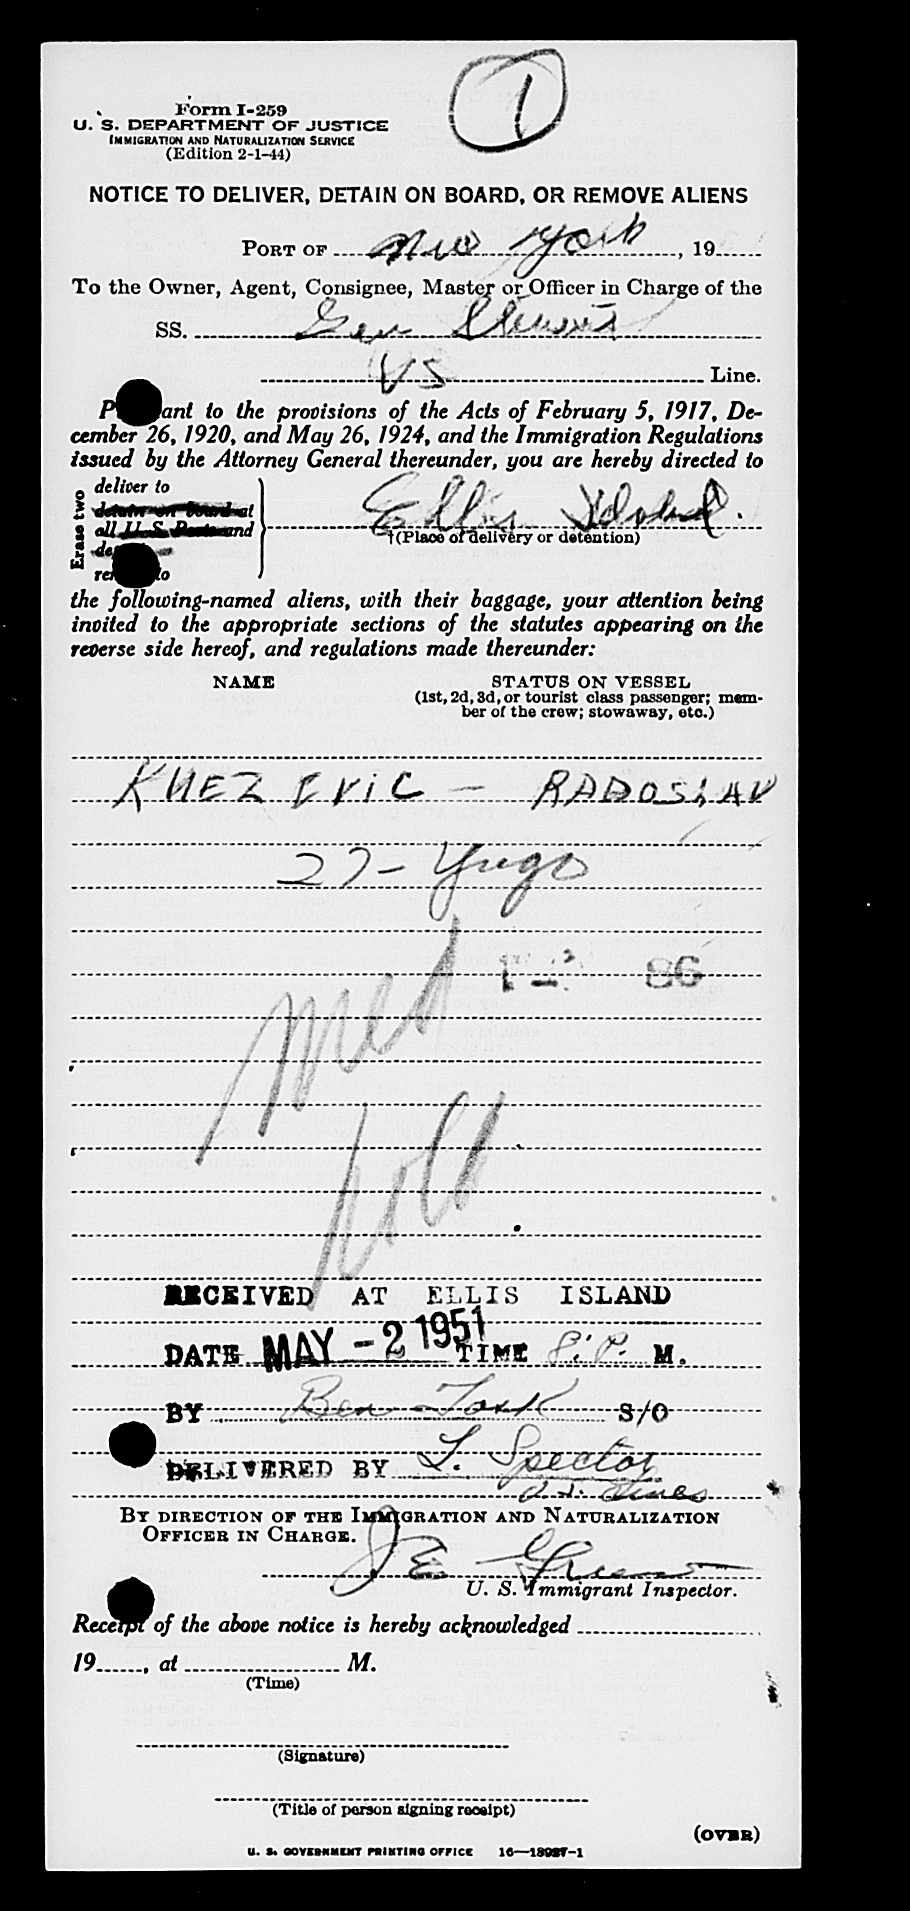 1
Form I-259
U. S. DEPARTMENT OF JUSTICE
IMMIGRATION AND NATURALIZATION SERVICE
(Edition 2-1-44)
NOTICE TO DELIVER, DETAIN ON BOARD, OR REMOVE ALIENS
PORT OF New York, 19
To the Owner, Agent, Consignee, Master or Officer in Charge of the
SS. Gen Stewart
US Line.
ant to the provisions of the Acts of February 5, 1917, De-
cember 26, 1920, and May 26, 1924, and the Immigration Regulations
issued by the Attorney General thereunder, you are hereby directed to
Erase two
deliver to
detain on board at
all U. S. Ports and
Ellis Island.
†(Place of delivery or detention)
to
the following-named aliens, with their baggage, your attention being
invited to the appropriate sections of the statutes appearing on the
reverse side hereof, and regulations made thereunder:
NAME STATUS ON VESSEL
(1st, 2d, 3d, or tourist class passenger; mem-
ber of the crew; stowaway, etc.)
KNEZEVIC - RADOSLAV
27 - Yugo
86
Med
hold
RECEIVED AT ELLIS ISLAND
DATE MAY -2 1951 TIME 8: P. M.
BY Ben S/O
DELIVERED BY L. Spector
BY DIRECTION OF THE IMMIGRATION AND NATURALIZATION
OFFICER IN CHARGE.
J E
U. S. Immigrant Inspector.
Receipt of the above notice is hereby acknowledged
19, at M.
(Time)
(Signature)
(Title of person signing receipt)
(OVER)
U. S. GOVERNMENT PRINTING OFFICE 16—13927-1